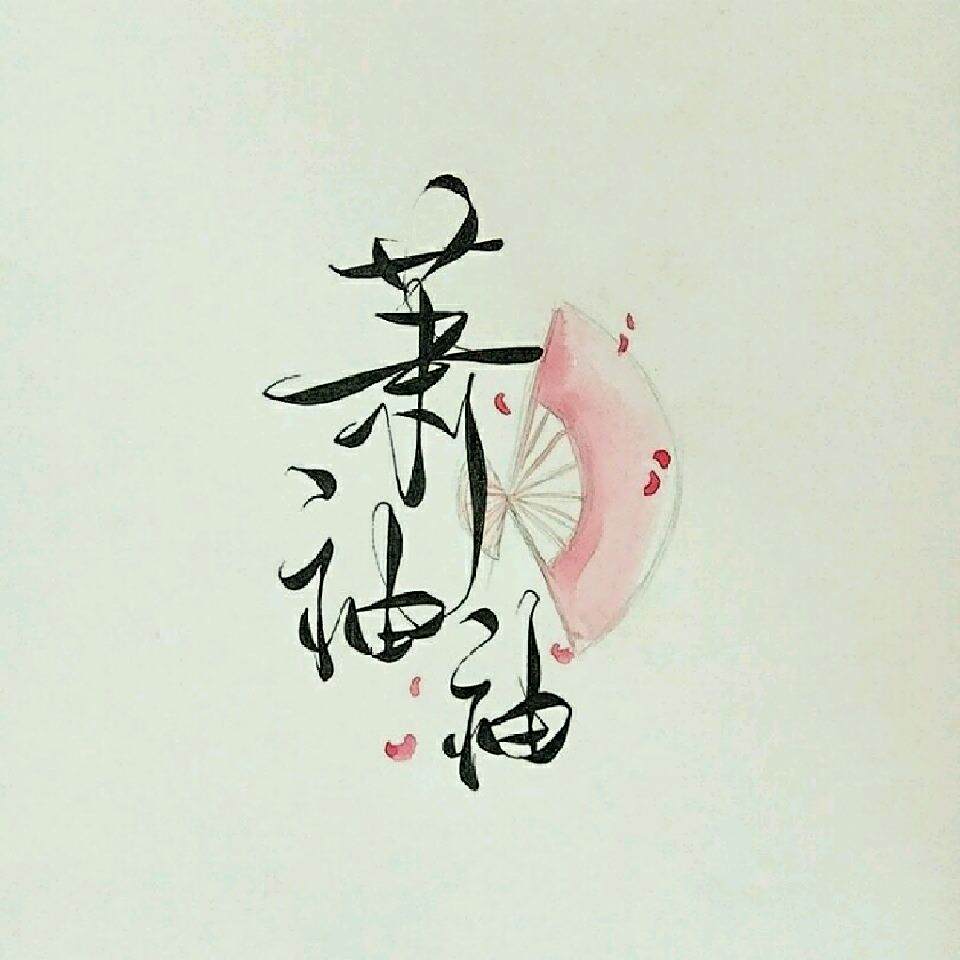 萧袖袖